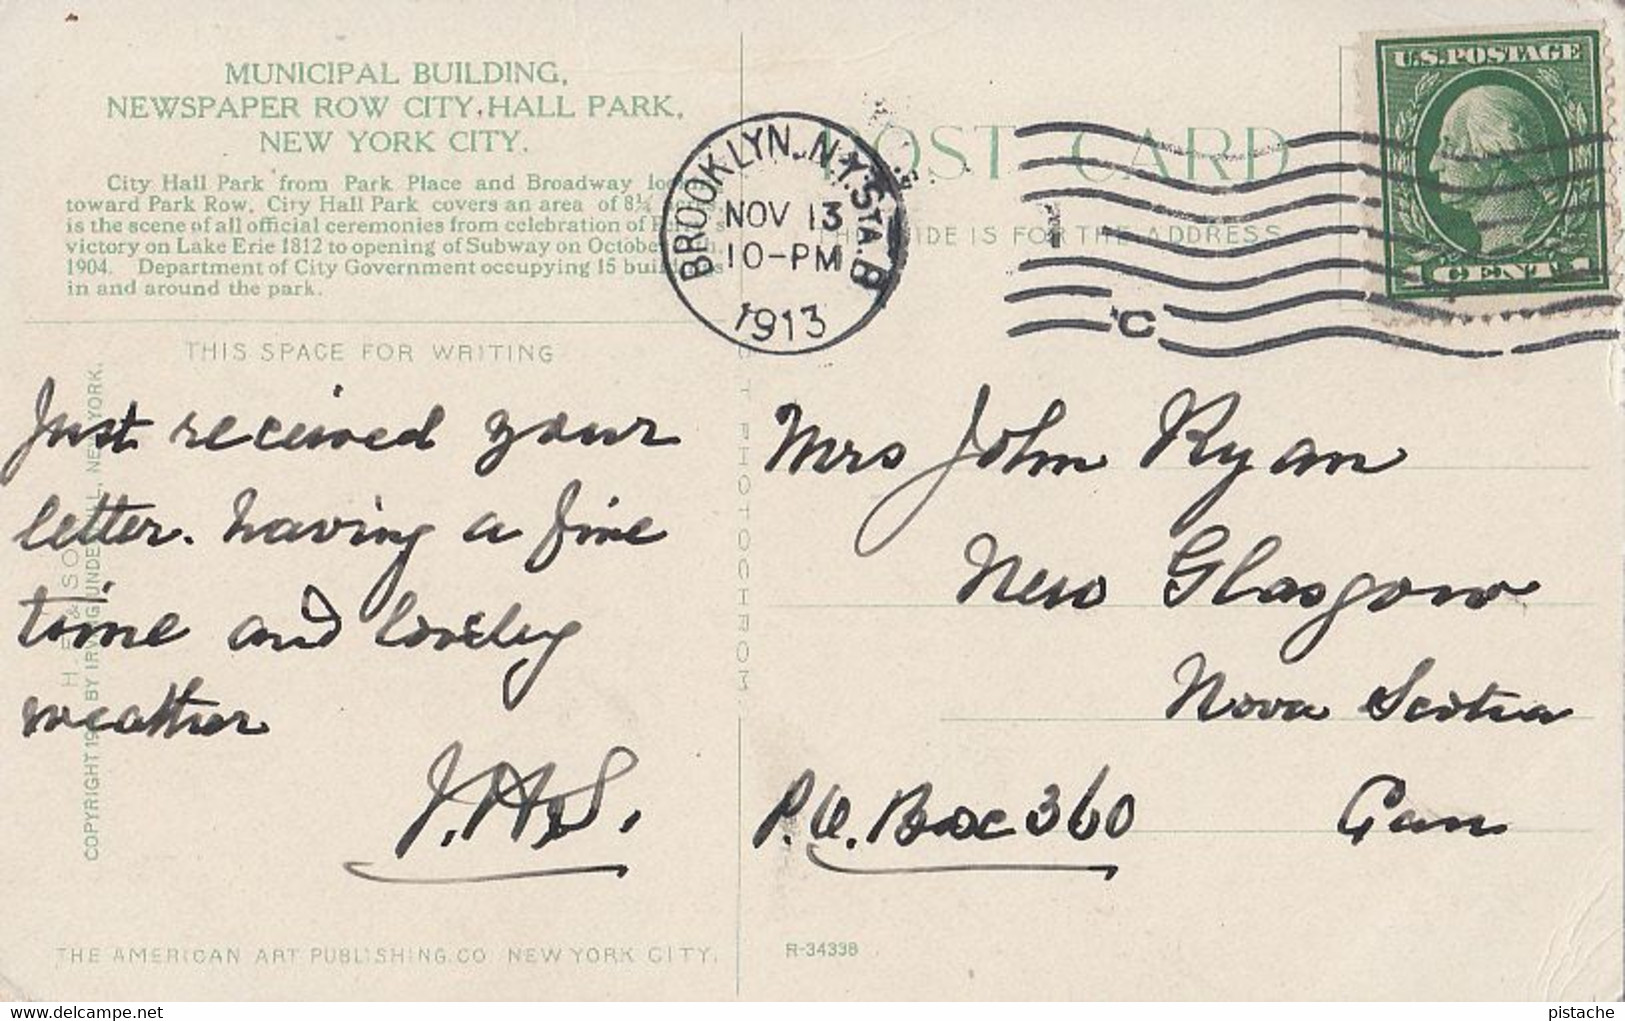 MUNICIPAL BUILDING,
NEWSPAPER ROW CITY, HALL PARK,
NEW YORK CITY.
City Hall Park from Park Place and Broadway
toward Park Row. City Hall Park covers an area of 8¼
is the scene of all official ceremonies from celebration of
victory on Lake Erie 1812 to opening of Subway on
1904. Department of City Government occupying 15
in and around the park.
THIS SPACE FOR WRITING
Just received your
letter. having a fine
time and lovely
weather
J.H.S.
THE AMERICAN ART PUBLISHING.CO NEW YORK CITY.
COPYRIGHT BY IRVING UNDERHILL, NEW YORK.
PHOTOCHROM
BROOKLYN, N.Y. STA. B
NOV 13
10-PM
1913
POST CARD
THIS SIDE IS FOR THE ADDRESS
C
U.S. POSTAGE
1 CENT 1
Mrs John Ryan
New Glasgow
Nova Scotia
P.O. Box 360 Can
R-34338
pistache